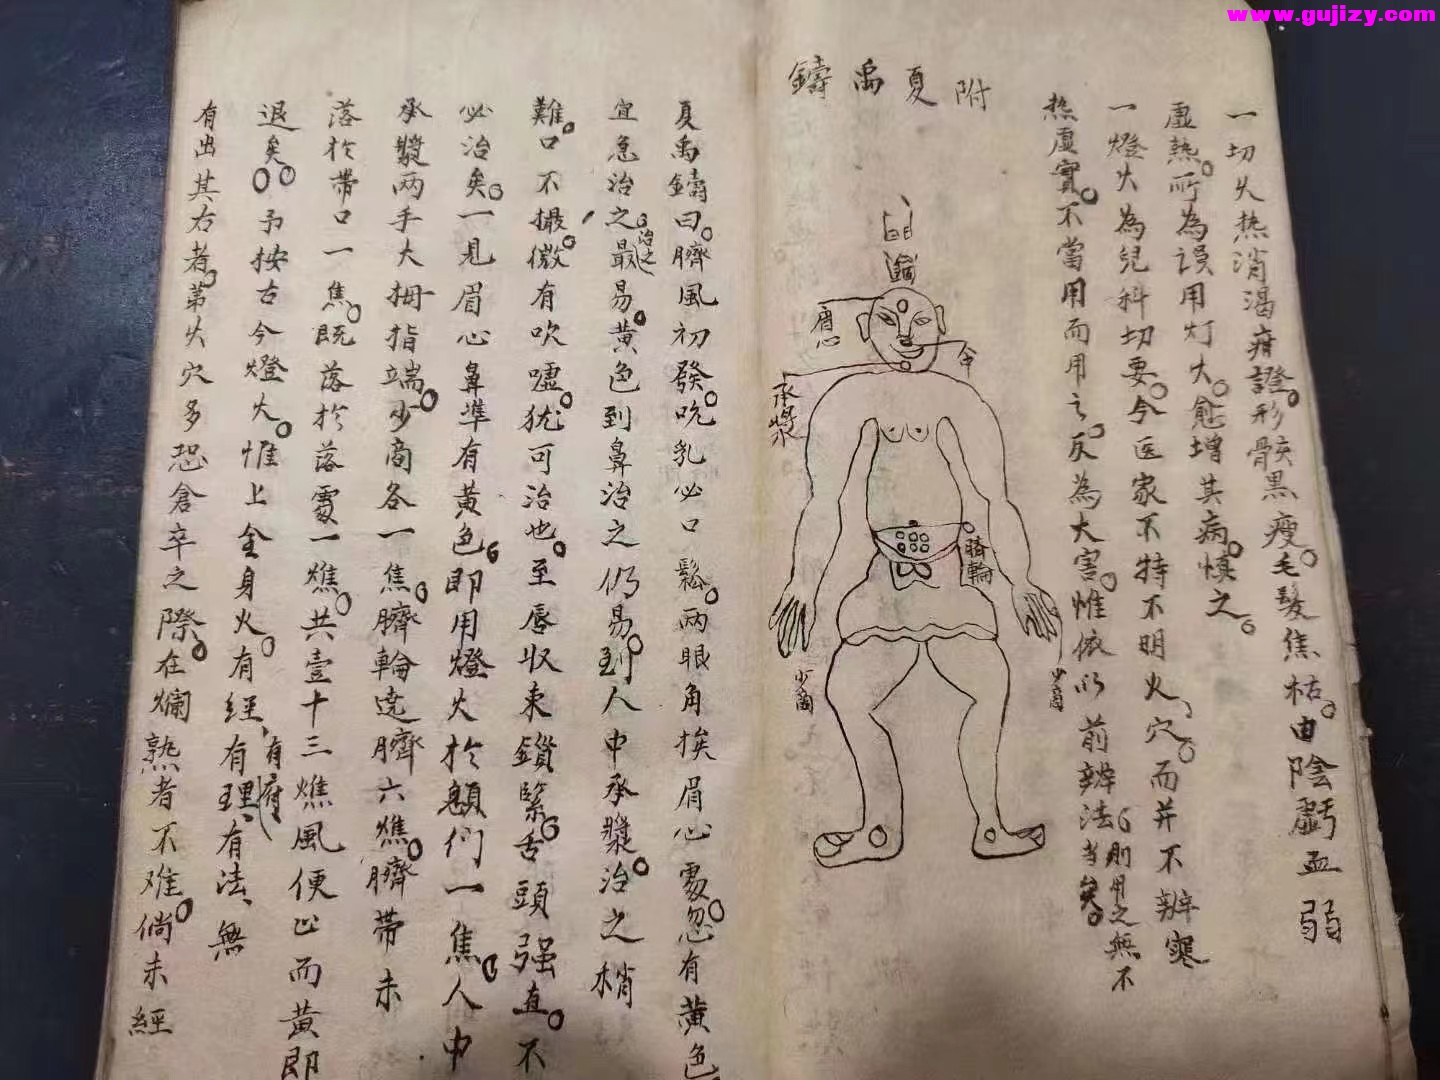 www.gujizy.com
一切火热消渴疳證。形骸黒瘦。毛髮焦枯。由陰虧血弱
虚熱。所為误用灯火。愈增其病。慎之。
一燈火為兒科切要。今医家不特不明火穴。而并不辨寒
热虚實。不當用而用之。反為大害。惟依以前辨法。則用之無不当矣。
附夏禹鑄
囟
眉心
承漿
臍輪
少商
少商
夏禹鑄曰。臍風初發。吮乳必口鬆。兩眼角挨眉心處。忽有黃色
宜急治之。治之最易。黃色到鼻治之仍易。到人中承漿。治之稍
難。口不撮。微有吹嘘。犹可治也。至唇收束鎖緊。舌頭强直。不
必治矣。一見眉心鼻準有黃色。即用燈火於額們一焦。人中
承漿两手大拇指端。少商各一焦。臍輪逹臍六燋。臍帶未
落於帶口一焦。既落於落處一燋。共壹十三燋風便止而黃即
退矣。予按古今燈火。惟上全身火。有經、有府、有理、有法、無
有出其右者。第火穴多恐倉卒之際。在爛熟者不难。倘未經